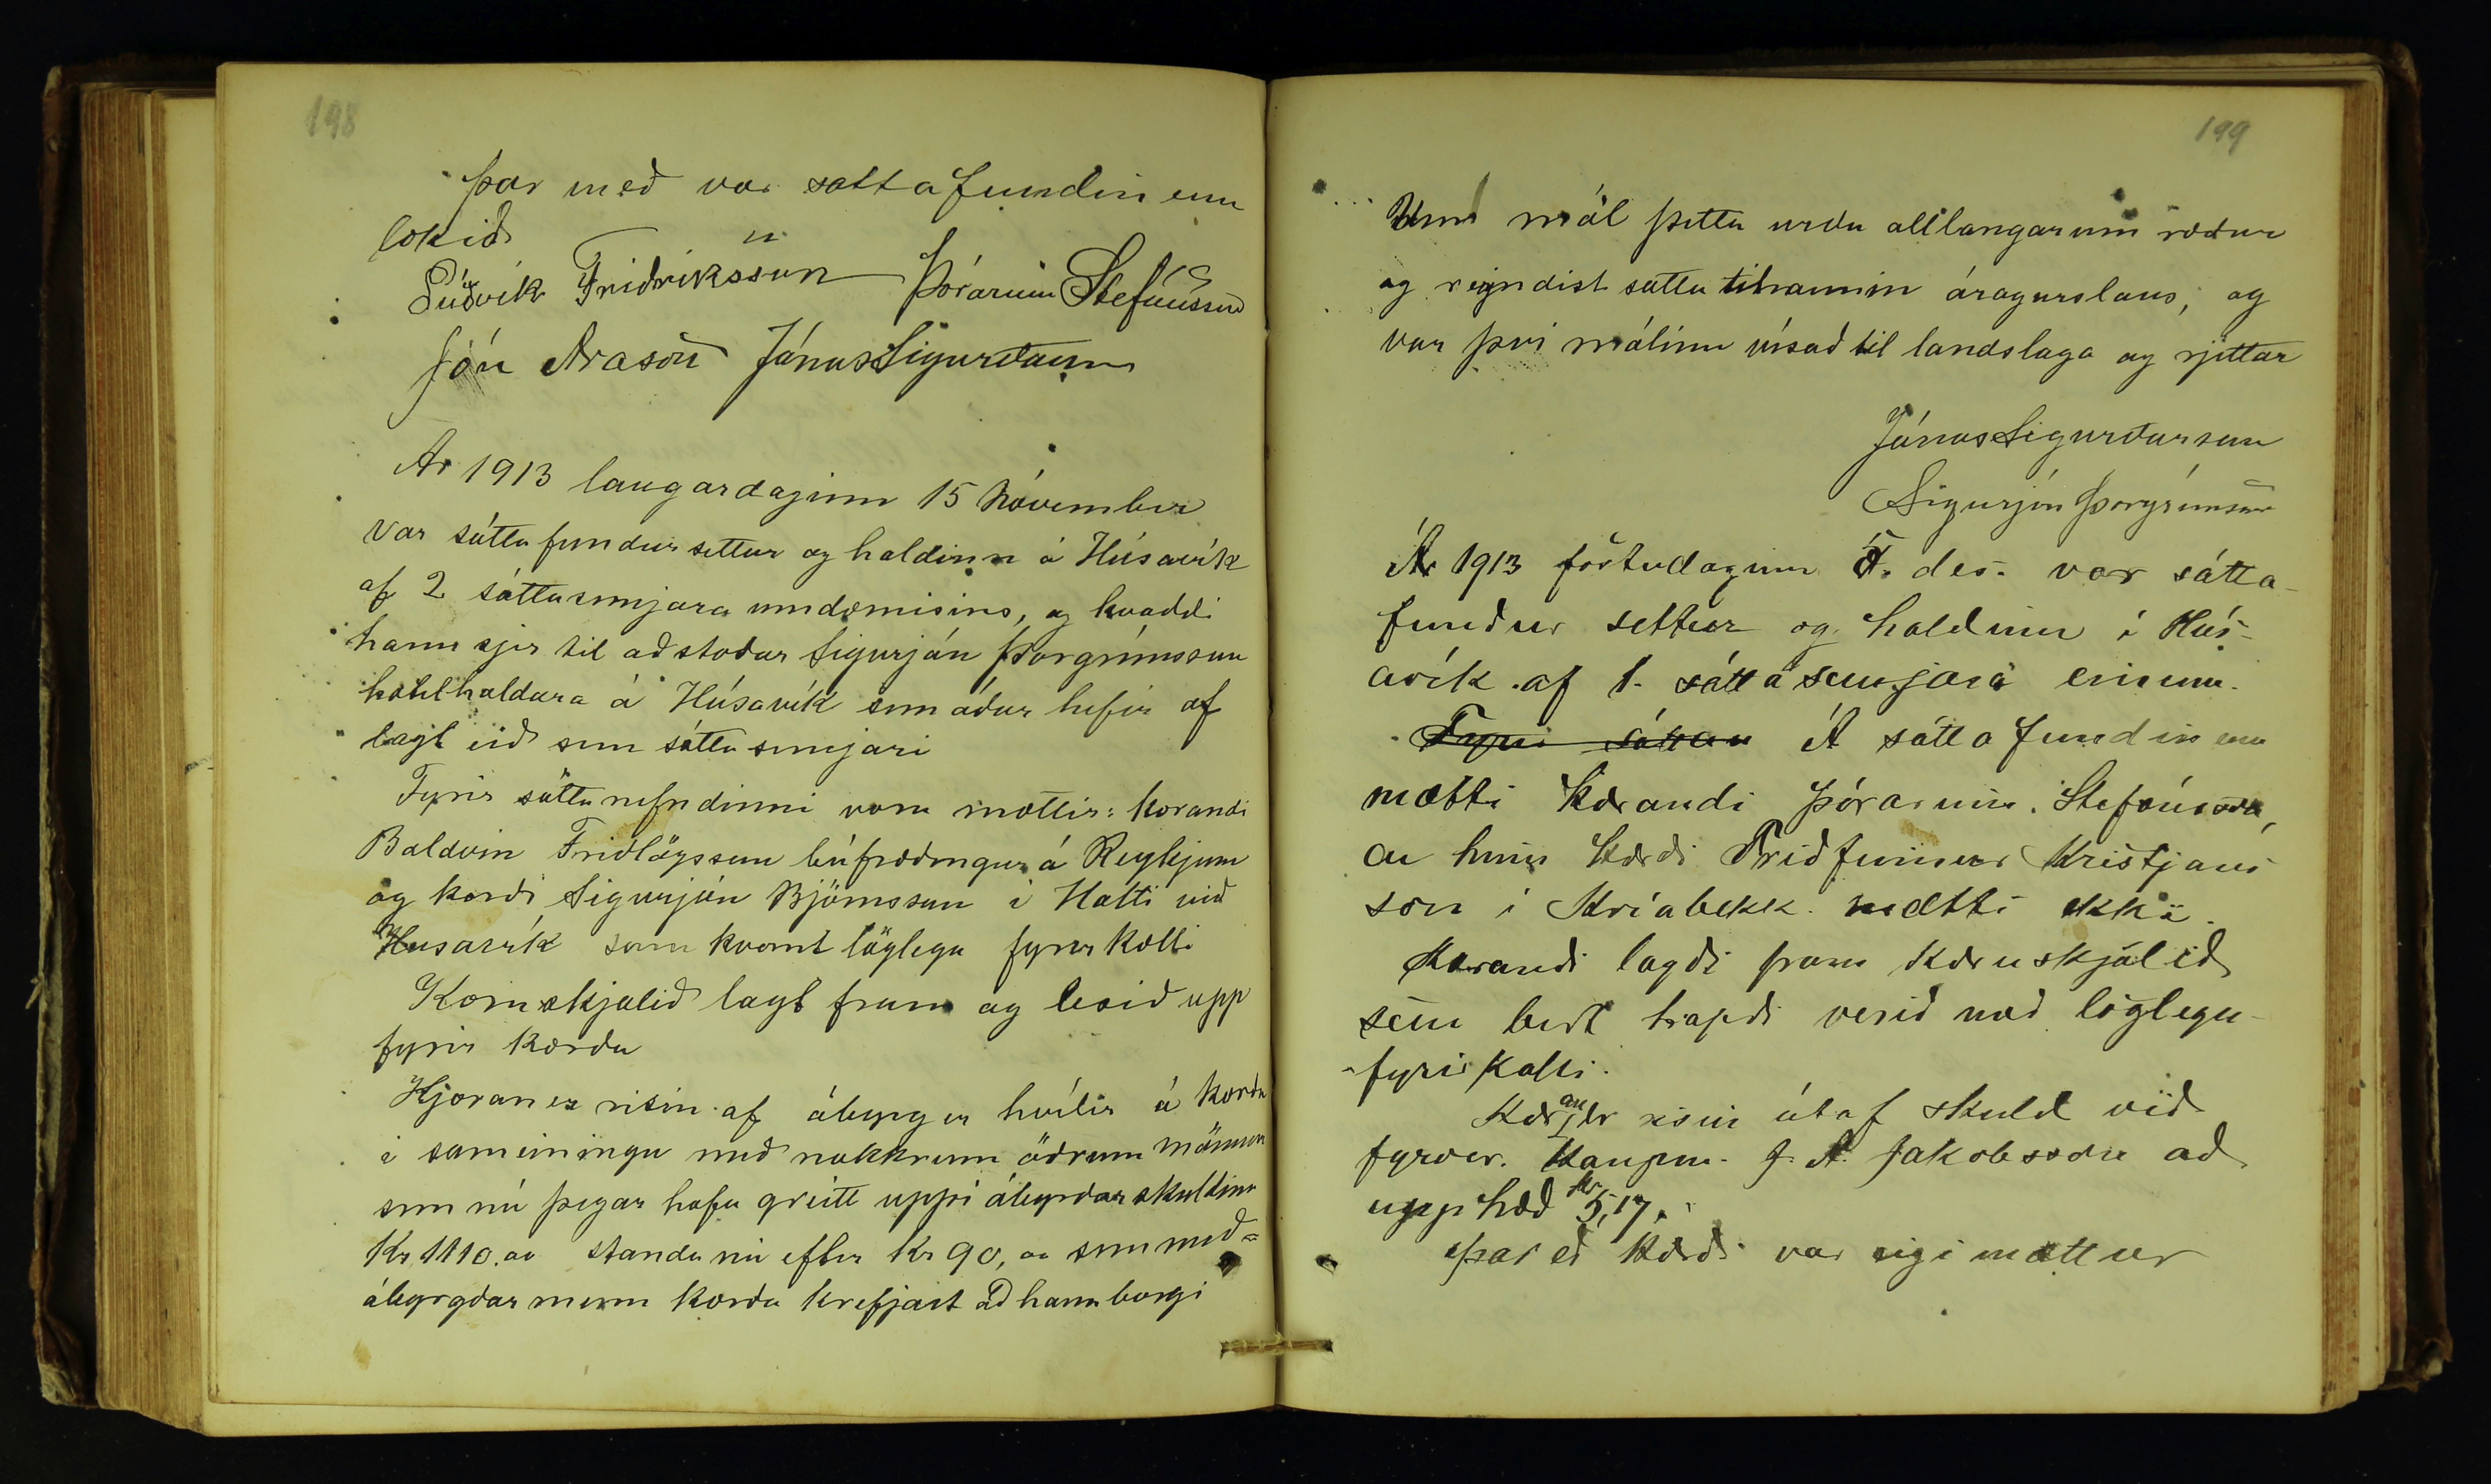 198
Þar með var sáttafundinum
lokið
Lúðvík Friðriksson Þórarinn Stefánsson
Jón Arason Jónas Sigurðsson
Ár 1913 laugardaginn 15 Nóvember
var sáttafundur settur og haldinn á Húsavík
af 2 sáttasemjara umdæmisins, og kvaddi
hann sjer til aðstoðar Sigurjón Þorgrímsson
hotelhaldara á Húsavík sem áður hefir af
lagt eið sem sáttasemjari
Fyrir sáttanefndinni voru mættir: kærandi
Baldvin Friðlögsson búfræðingur á Reykjum
og kærði Sigurjón Björnsson í Hatti við
Húsavík samkvæmt löglegu fyrirkalli
Kæruskjalið lagt fram og lesið upp
fyrir kærða
Kjæran er risin af ábyrgð er hvílir á kærða
í sameiningu með nokkrum öðrum mönnum
sem nú þegar hafa greitt uppí ábyrðarskuldina
Kr 1110. au standa nú eftir Kr 90, au sem með=
ábyrgðarmenn kærða krefjast að hann borgi
199
Um mál þetta urðu alllangar umræður
og reyndist sátta tilraunin árangurslaus, og
var því málinu vísað til landslaga og rjettar
Jónas Sigurðarson
Sigurjón Þorgrímsson
Ár 1913 föstudaginn 5. des. var sátta-
fundur settur og haldinn í Hús-
avík af 1. sáttasemjara einum.
Fyrir sáttan Á sáttafundinum
mætti kærandi Þórarinn Stefánsson,
en hinn kærði Friðfinnur Kristjáns
son í Kríabekk mætti ekki.
Kærandi lagði fram kæruskjalið
sem birt hafði verið með löglegu
fyrirkalli.
Kæran er risin út af skuld við
fyrver. kaupm. J. A. Jakobsson að
upphæð kr 5,17.
Þar eð kærði var eigi mættur